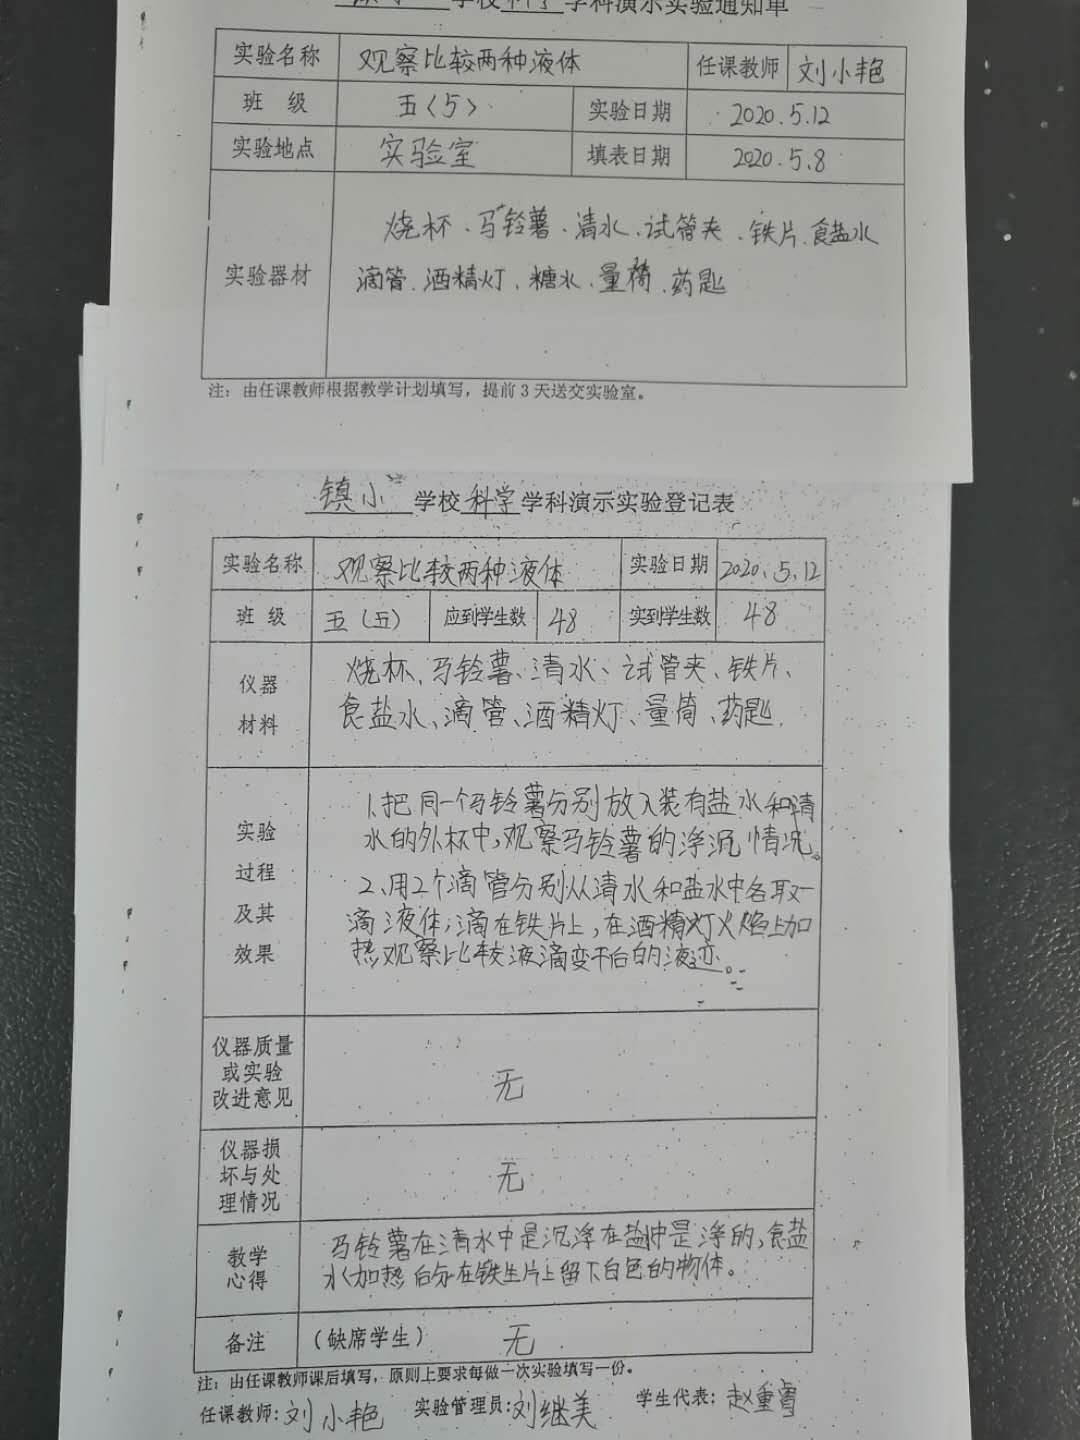 学校科学学科演示实验通知单
实验名称 观察比较两种液体 任课教师 刘小艳
班 级 五〈5〉 实验日期 2020.5.12
实验地点 实验室 填表日期 2020.5.8
实验器材
烧杯、马铃薯、清水、试管夹、铁片、食盐水
滴管、酒精灯、糖水、量筒、药匙
注：由任课教师根据教学计划填写，提前3天送交实验室。
镇小学校科学学科演示实验登记表
实验名称 观察比较两种液体 实验日期 2020.5.12
班 级 五（五） 应到学生数 48 实到学生数 48
仪器
材料
烧杯、马铃薯、清水、试管夹、铁片、
食盐水、滴管、酒精灯、量筒、药匙.
实验
过程
及其
效果
1、把同一个马铃薯分别放入装有盐水和清
水的外杯中,观察马铃薯的浮沉情况。
2、用2个滴管分别从清水和盐水中各取一
滴液体,滴在铁片上,在酒精灯火焰上加
热观察比较液滴变干后的液迹。
仪器质量
或实验
改进意见
无
仪器损
坏与处
理情况
无
教学
心得
马铃薯在清水中是沉浮在盐中是浮的,食盐
水加热后在铁片上留下白色的物体。
备注 （缺席学生） 无
注：由任课教师课后填写，原则上要求每做一次实验填写一份。
任课教师:刘小艳 实验管理员:刘继美 学生代表:赵重睿